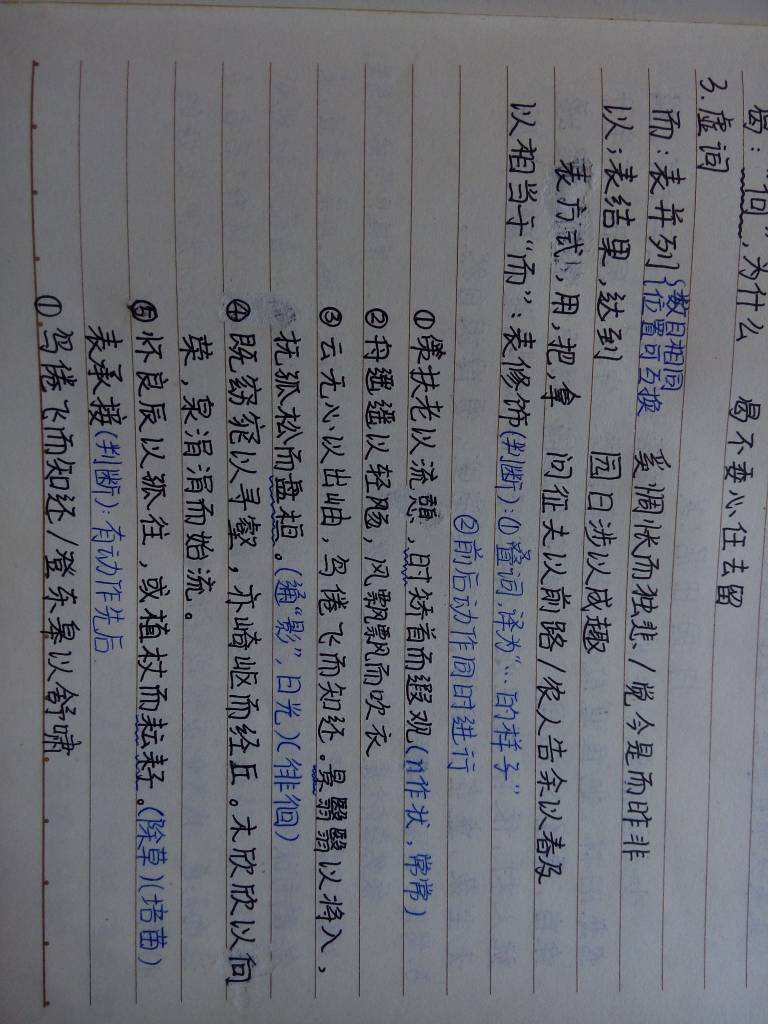 曷:“何”,为什么 曷不委心任去留
3.虚词
而:表并列{数目相同 位置可互换 奚惆怅而独悲/觉今是而昨非
以:表结果,达到 园日涉以成趣
表方式,用,把,拿 问征夫以前路/农人告余以春及
以相当于“而”:表修饰(判断):①叠词,译为“…的样子”
②前后动作同时进行
①策扶老以流憩,时矫首而遐观(n作状,常常)
②舟遥遥以轻飏,风飘飘而吹衣
③云无心以出岫,鸟倦飞而知还。景翳翳以将入,
抚孤松而盘桓。(通“影”,日光)(徘徊)
④既窈窕以寻壑,亦崎岖而经丘。木欣欣以向
荣,泉涓涓而始流。
⑤怀良辰以孤往,或植杖而耘耔。(除草)(培苗)
表承接(判断):有动作先后
①鸟倦飞而知还/登东皋以舒啸